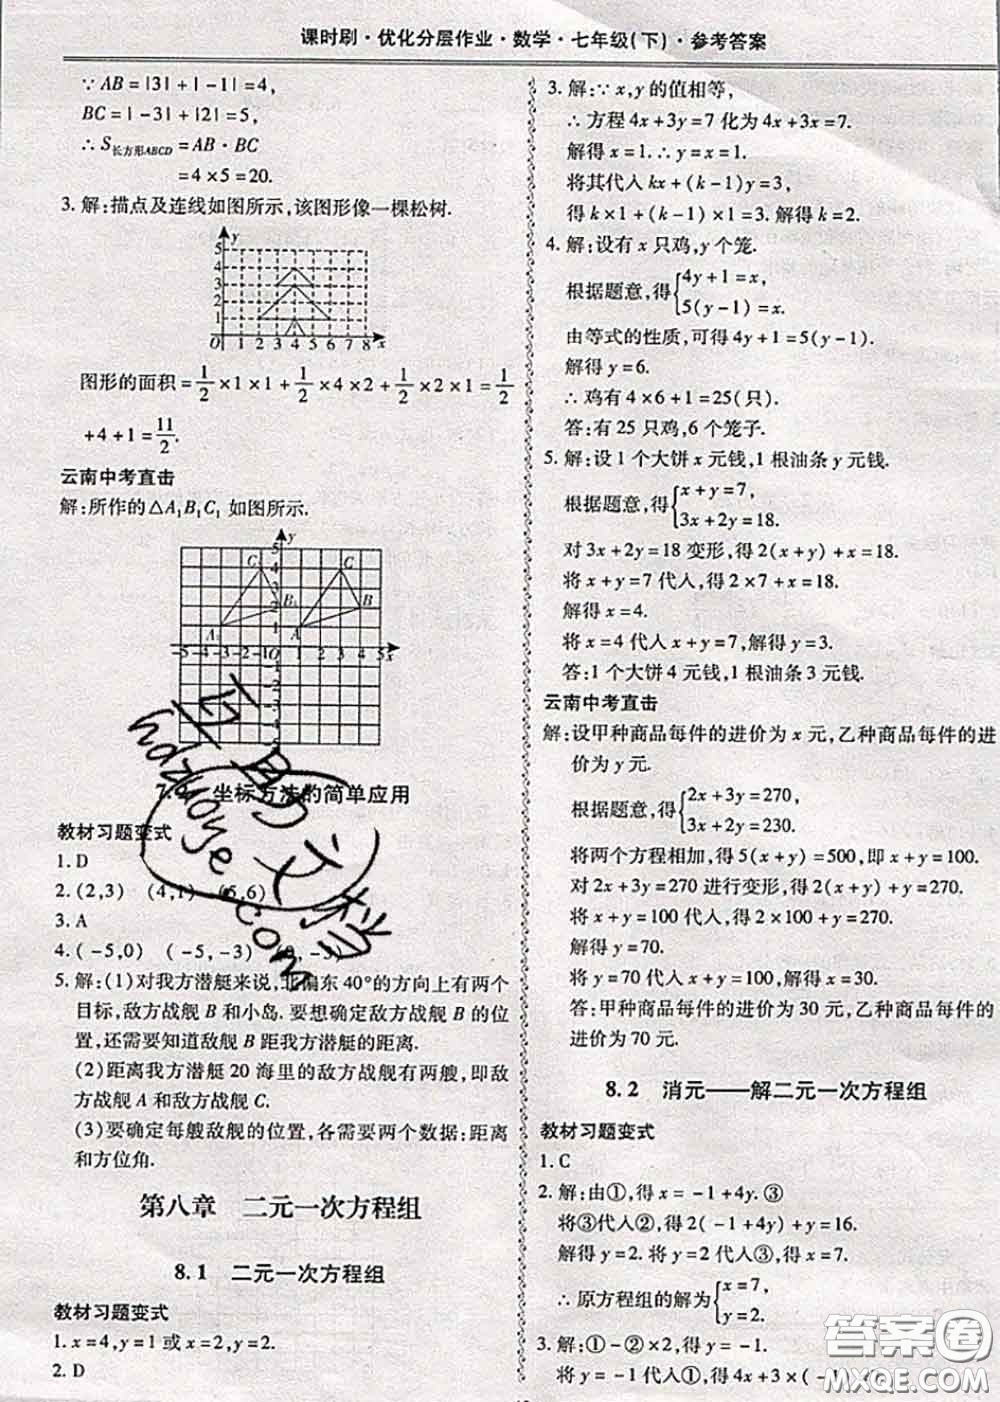 课时刷·优化分层作业·数学·七年级(下)·参考答案
∵AB=|3|+|-1|=4,
BC=|-3|+|2|=5,
∴S长方形ABCD=AB·BC
=4×5=20.
3.解:描点及连线如图所示,该图形像一棵松树.
y
5
4
3
2
1
O 1 2 3 4 5 6 7 8 x
图形的面积=1/2×1×1+1/2×4×2+1/2×2×1=1/2
+4+1=11/2.
云南中考直击
解:所作的△A₁B₁C₁如图所示.
y
5
C₁ 4 C
3
B₁ 2 B
A₁ 1 A
-5 -4 -3 -2 -1 O 1 2 3 4 5 x
坐标方法的简单应用
教材习题变式
1.D
2.(2,3) (4,1) (5,6)
3.A
4.(-5,0) (-5,-3) (0,-3)
5.解:(1)对我方潜艇来说,北偏东40°的方向上有两个
目标,敌方战舰B和小岛.要想确定敌方战舰B的位
置,还需要知道敌方战舰B距我方潜艇的距离.
(2)距离我方潜艇20海里的敌方战舰有两艘,即敌
方战舰A和敌方战舰C.
(3)要确定每艘敌舰的位置,各需要两个数据:距离
和方位角.
第八章 二元一次方程组
8.1 二元一次方程组
教材习题变式
1.x=4,y=1或x=2,y=2.
2.D
3.解:∵x,y的值相等,
∴方程4x+3y=7化为4x+3x=7.
解得x=1.∴y=x=1.
将其代入kx+(k-1)y=3,
得k×1+(k-1)×1=3.解得k=2.
4.解:设有x只鸡,y个笼.
根据题意,得{4y+1=x,
5(y-1)=x.
由等式的性质,可得4y+1=5(y-1).
解得y=6.
∴鸡有4×6+1=25(只).
答:有25只鸡,6个笼子.
5.解:设1个大饼x元钱,1根油条y元钱.
根据题意,得{x+y=7,
3x+2y=18.
对3x+2y=18变形,得2(x+y)+x=18.
将x+y=7代入,得2×7+x=18.
解得x=4.
将x=4代入x+y=7,解得y=3.
答:1个大饼4元钱,1根油条3元钱.
云南中考直击
解:设甲种商品每件的进价为x元,乙种商品每件的进
价为y元.
根据题意,得{2x+3y=270,
3x+2y=230.
将两个方程相加,得5(x+y)=500,即x+y=100.
对2x+3y=270进行变形,得2(x+y)+y=270.
将x+y=100代入,得2×100+y=270.
解得y=70.
将y=70代入x+y=100,解得x=30.
答:甲种商品每件的进价为30元,乙种商品每件的
进价为70元.
8.2 消元——解二元一次方程组
教材习题变式
1.C
2.解:由①,得x=-1+4y.③
将③代入②,得2(-1+4y)+y=16.
解得y=2.将y=2代入③,得x=7.
∴原方程组的解为{x=7,
y=2.
3.解:①-②×2,得y=-1.
将y=-1代入①,得4x+3×(-1)
答案圈
MXQE.COM
hdzuoye.com